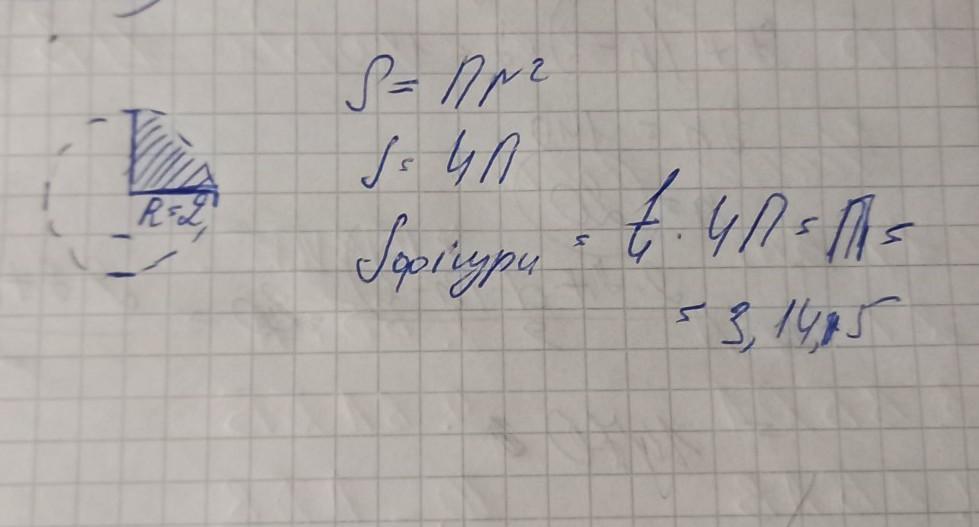 R=2
S = Пr²
S = 4П
Sфігури = 1/4 · 4П = П =
= 3,1415